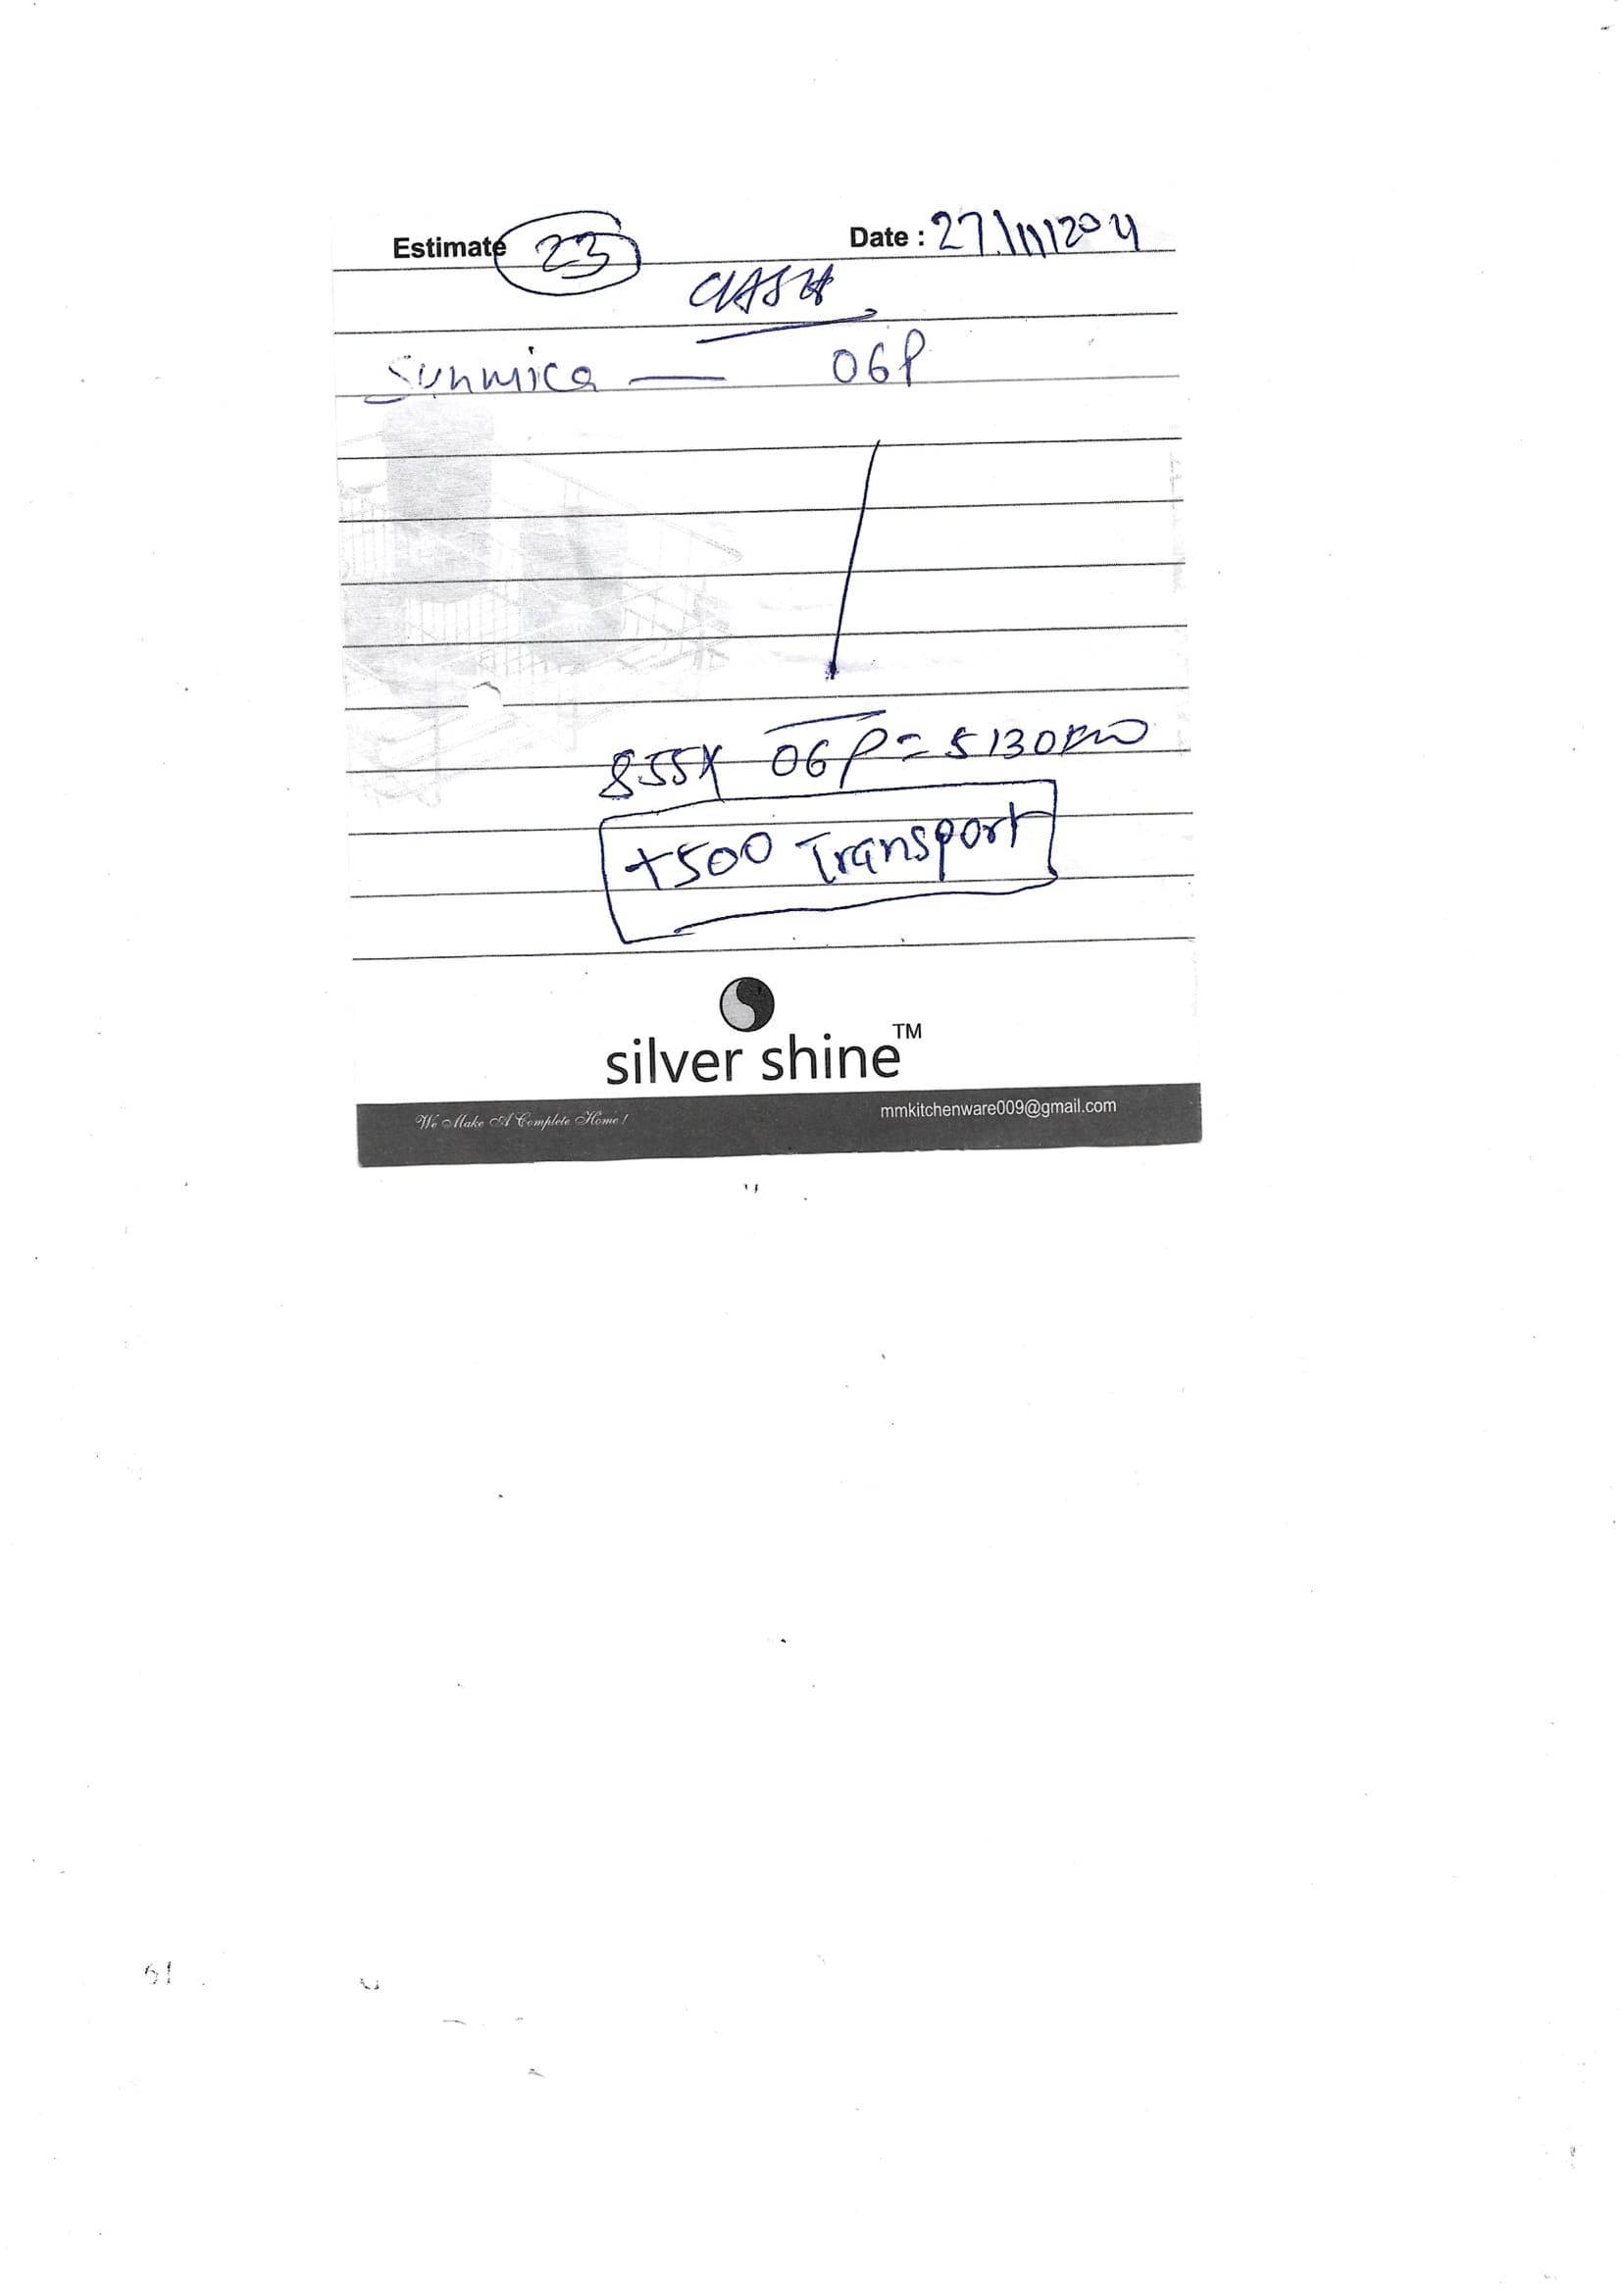 Estimate 23 Date : 27/11/2021
CASH
Sunmica — 06P
855X 06P = 5130
+500 Transport
silver shine™
We Make A Complete Home !
mmkitchenware009@gmail.com